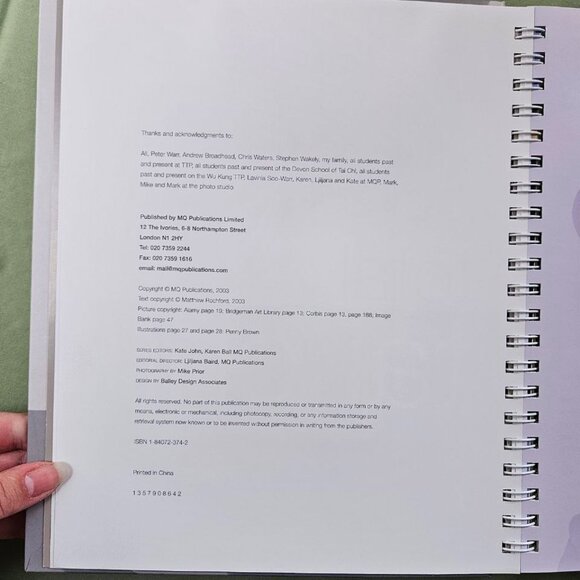 Thanks and acknowledgments to:
Ali, Peter Warr, Andrew Broadhead, Chris Waters, Stephen Wakely, my family, all students past
and present at TTP, all students past and present of the Devon School of Tai Chi, all students
past and present on the Wu Kung TTP, Lawnia Soo-Warr, Karen, Ljiljana and Kate at MQP, Mark,
Mike and Mark at the photo studio.
Published by MQ Publications Limited
12 The Ivories, 6-8 Northampton Street
London N1 2HY
Tel: 020 7359 2244
Fax: 020 7359 1616
email: mail@mqpublications.com
Copyright © MQ Publications, 2003
Text copyright © Matthew Rochford, 2003
Picture copyright: Alamy page 19; Bridgeman Art Library page 13; Corbis page 13, page 188; Image
Bank page 47
Illustrations page 27 and page 28: Penny Brown
SERIES EDITORS: Kate John, Karen Ball MQ Publications
EDITORIAL DIRECTOR: Ljiljana Baird, MQ Publications
PHOTOGRAPHY BY Mike Prior
DESIGN BY Balley Design Associates
All rights reserved. No part of this publication may be reproduced or transmitted in any form or by any
means, electronic or mechanical, including photocopy, recording, or any information storage and
retrieval system now known or to be invented without permission in writing from the publishers.
ISBN 1-84072-374-2
Printed in China
1 3 5 7 9 0 8 6 4 2